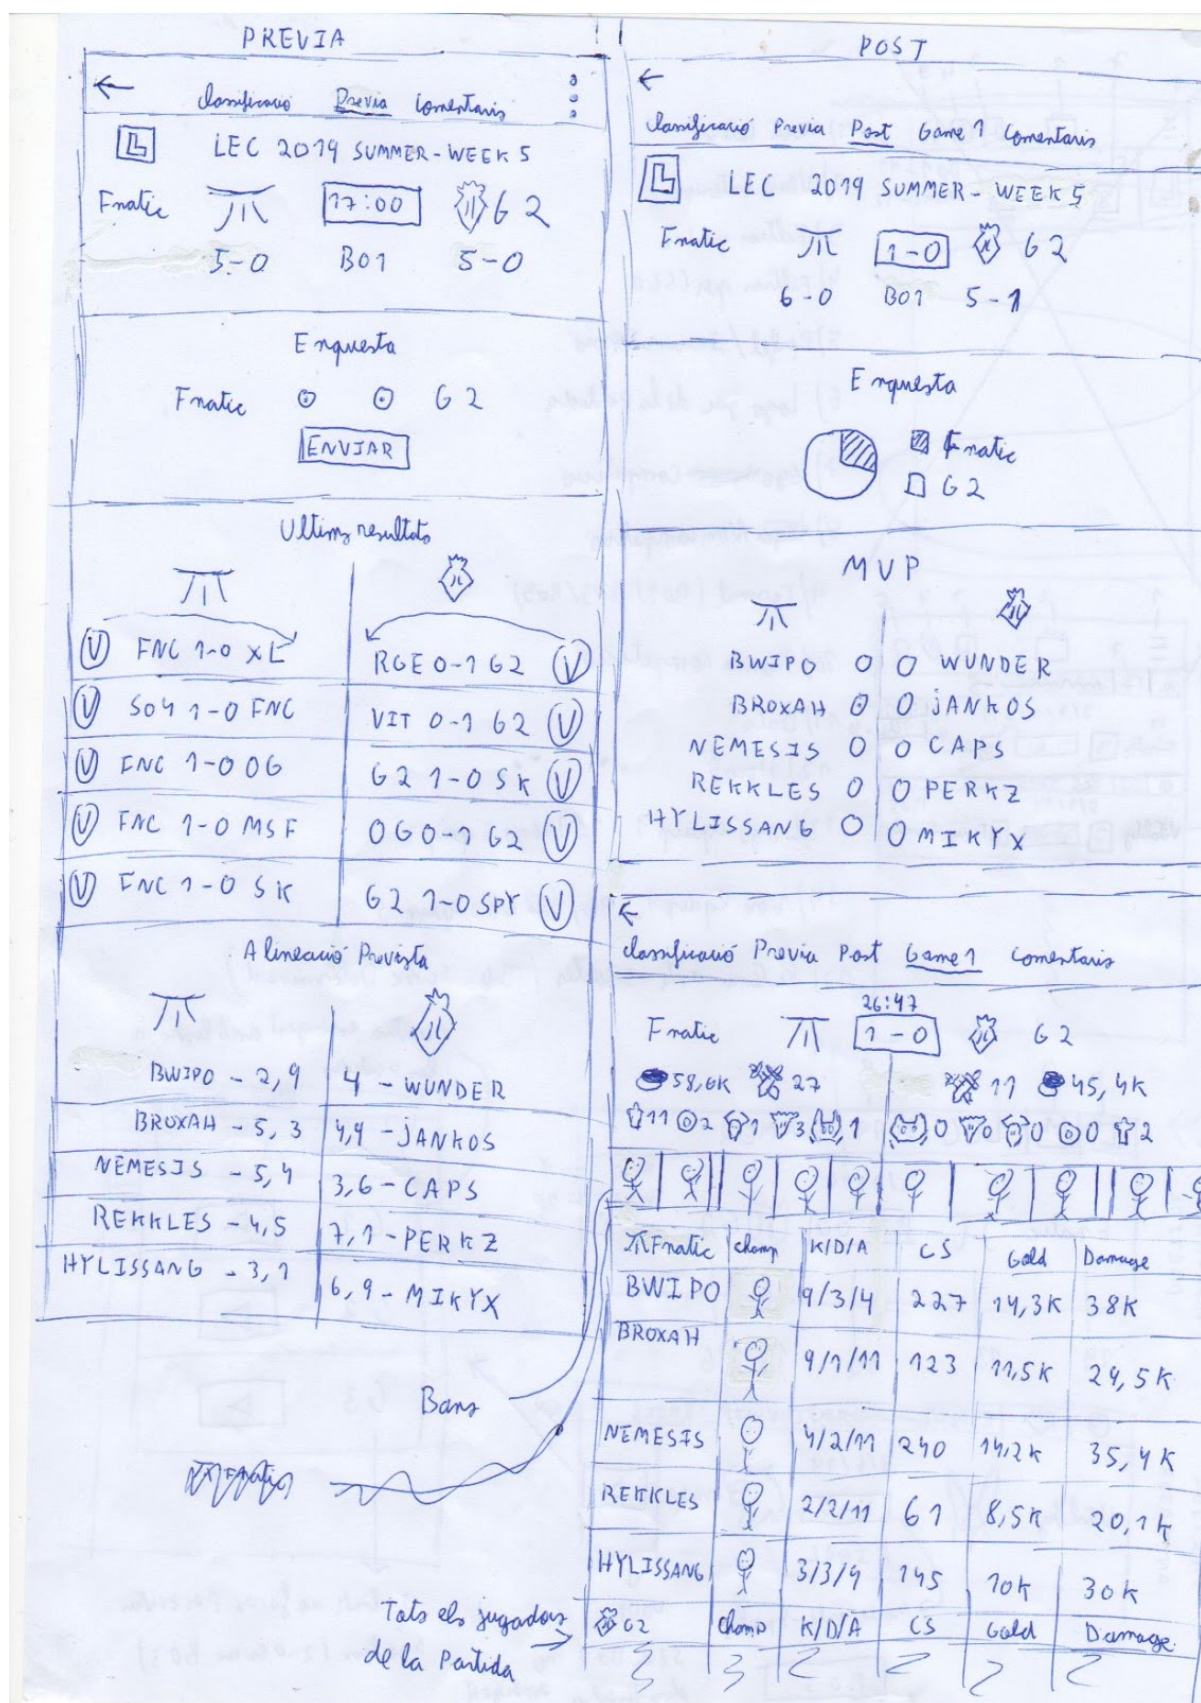 PREVIA
Classificació Previa Comentaris
LEC 2019 SUMMER-WEEK 5
Fnatic 17:00 G2
5-0 BO1 5-0
Enquesta
Fnatic G2
ENVIAR
Ultims resultats
V FNC 1-0 XL RGE 0-1 G2 V
V S04 1-0 FNC VIT 0-1 G2 V
V FNC 1-0 OG G2 1-0 SK V
V FNC 1-0 MSF OG 0-1 G2 V
V FNC 1-0 SK G2 1-0 SPY V
Alineació Prevista
BWIPO - 2,9 4 - WUNDER
BROXAH - 5,3 4,4 - JANKOS
NEMESIS - 5,4 3,6 - CAPS
REKKLES - 4,5 7,1 - PERKZ
HYLISSANG - 3,1 6,9 - MIKYX
Bans
Tots els jugadors
de la Partida
POST
Classificació Previa Post Game 1 Comentaris
LEC 2019 SUMMER-WEEK 5
Fnatic 1-0 G2
6-0 BO1 5-1
Enquesta
Fnatic
G2
MVP
BWIPO WUNDER
BROXAH JANKOS
NEMESIS CAPS
REKKLES PERKZ
HYLISSANG MIKYX
Classificació Previa Post Game 1 Comentaris
26:47
Fnatic 1-0 G2
58,6K 27 11 45,4K
11 2 1 3 1 0 0 0 0 2
Fnatic Champ K/D/A CS Gold Damage
BWIPO 9/3/4 227 14,3K 38K
BROXAH 9/1/11 123 11,5K 24,5K
NEMESIS 4/2/11 240 14,2K 35,4K
REKKLES 2/2/11 61 8,5K 20,1K
HYLISSANG 3/3/9 145 10K 30K
G2 Champ K/D/A CS Gold Damage